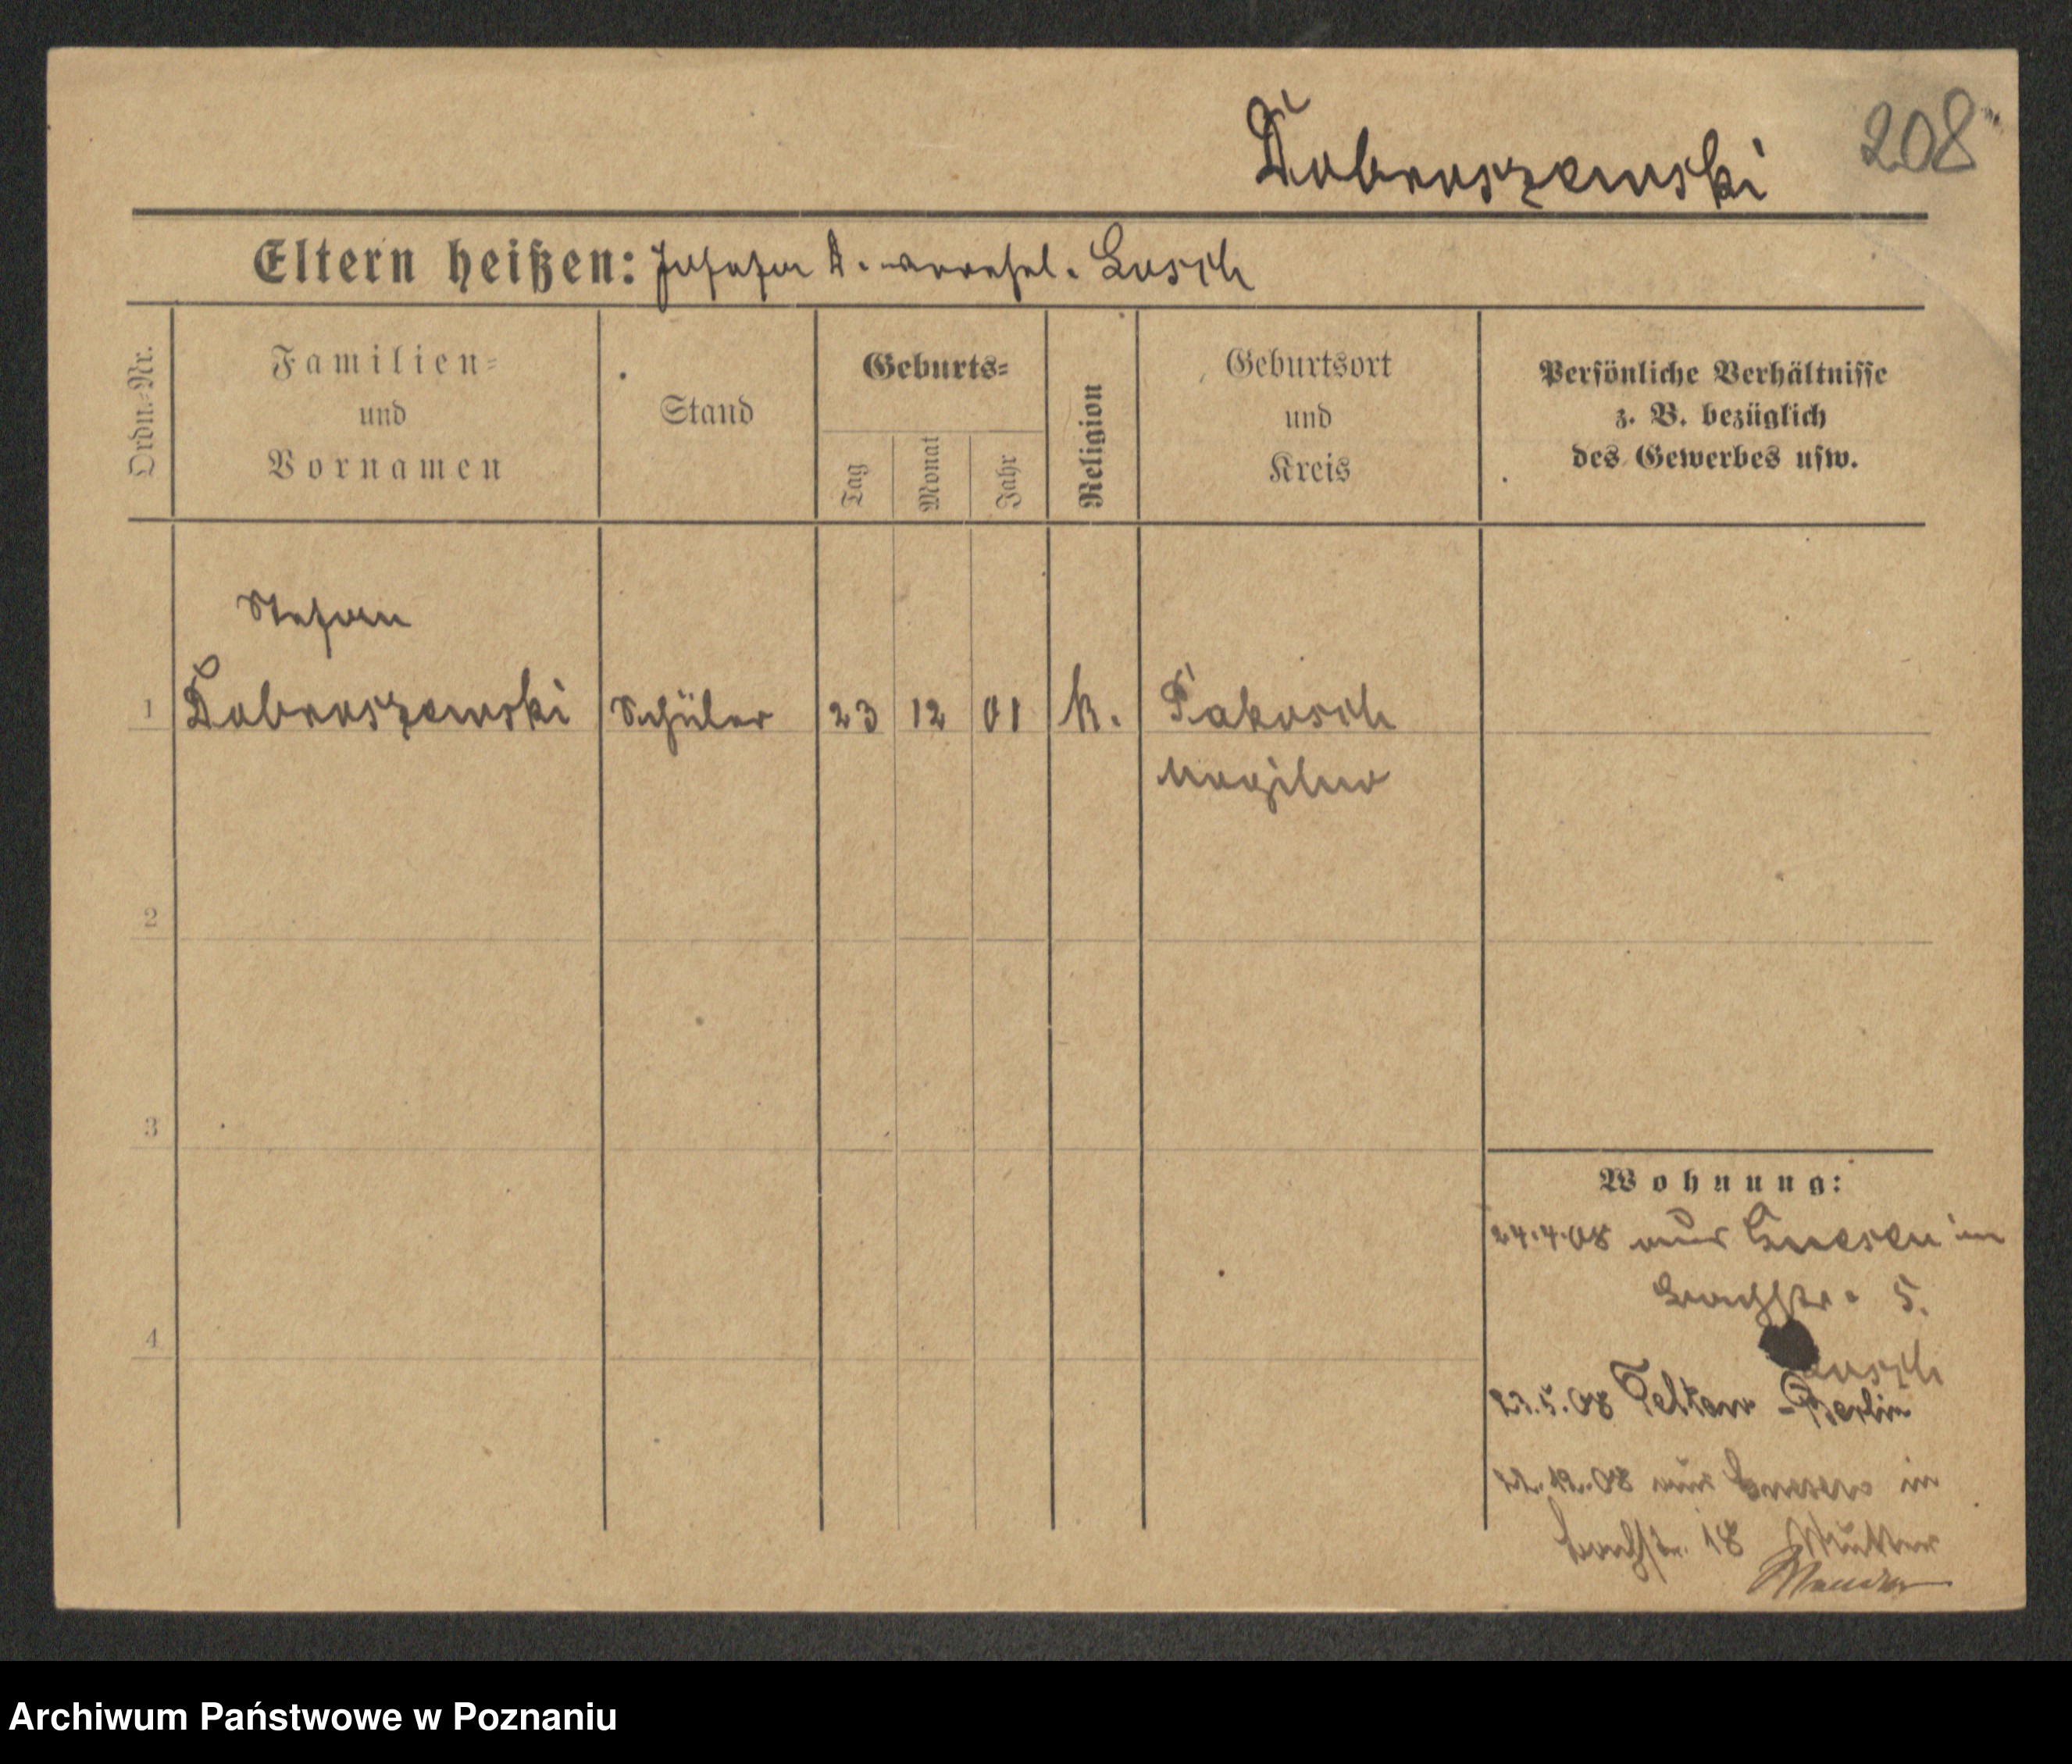 208
Dobroszewski
Eltern heißen: Josefa D. verehel. Losch
Ordn.-Nr.
Familien-
und
Vornamen
Stand
Geburts-
Tag
Monat
Jahr
Religion
Geburtsort
und
Kreis
Persönliche Verhältnisse
z. B. bezüglich
des Gewerbes usw.
Stefan
1 Dobroszewski Schüler 23 12 01 k. Pakosch
Mogilno
2
3
4
Wohnung:
24.4.08 aus Gnesen in
5.
Losch
23.5.08 Teltow-Berlin
22.12.08 aus Gnesen in
18 Mutter
Archiwum Państwowe w Poznaniu